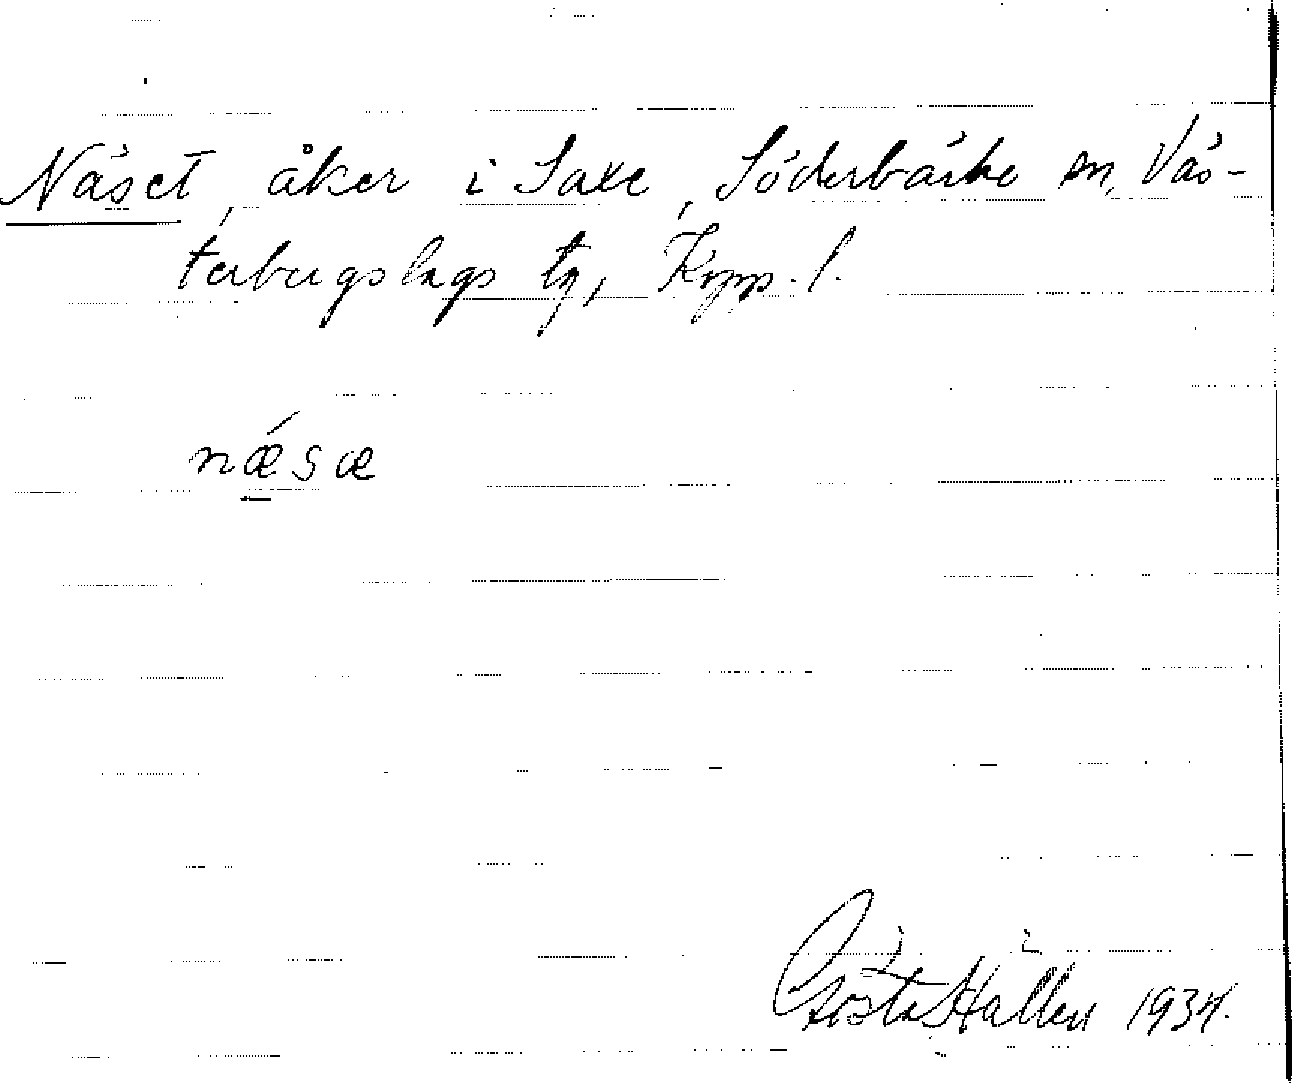 Näset, åker i Saxe, Söderbärke sn, Väs-
terbergslags tg, Kopp. l.
nǽsæ
Gösta Hällen 1934.